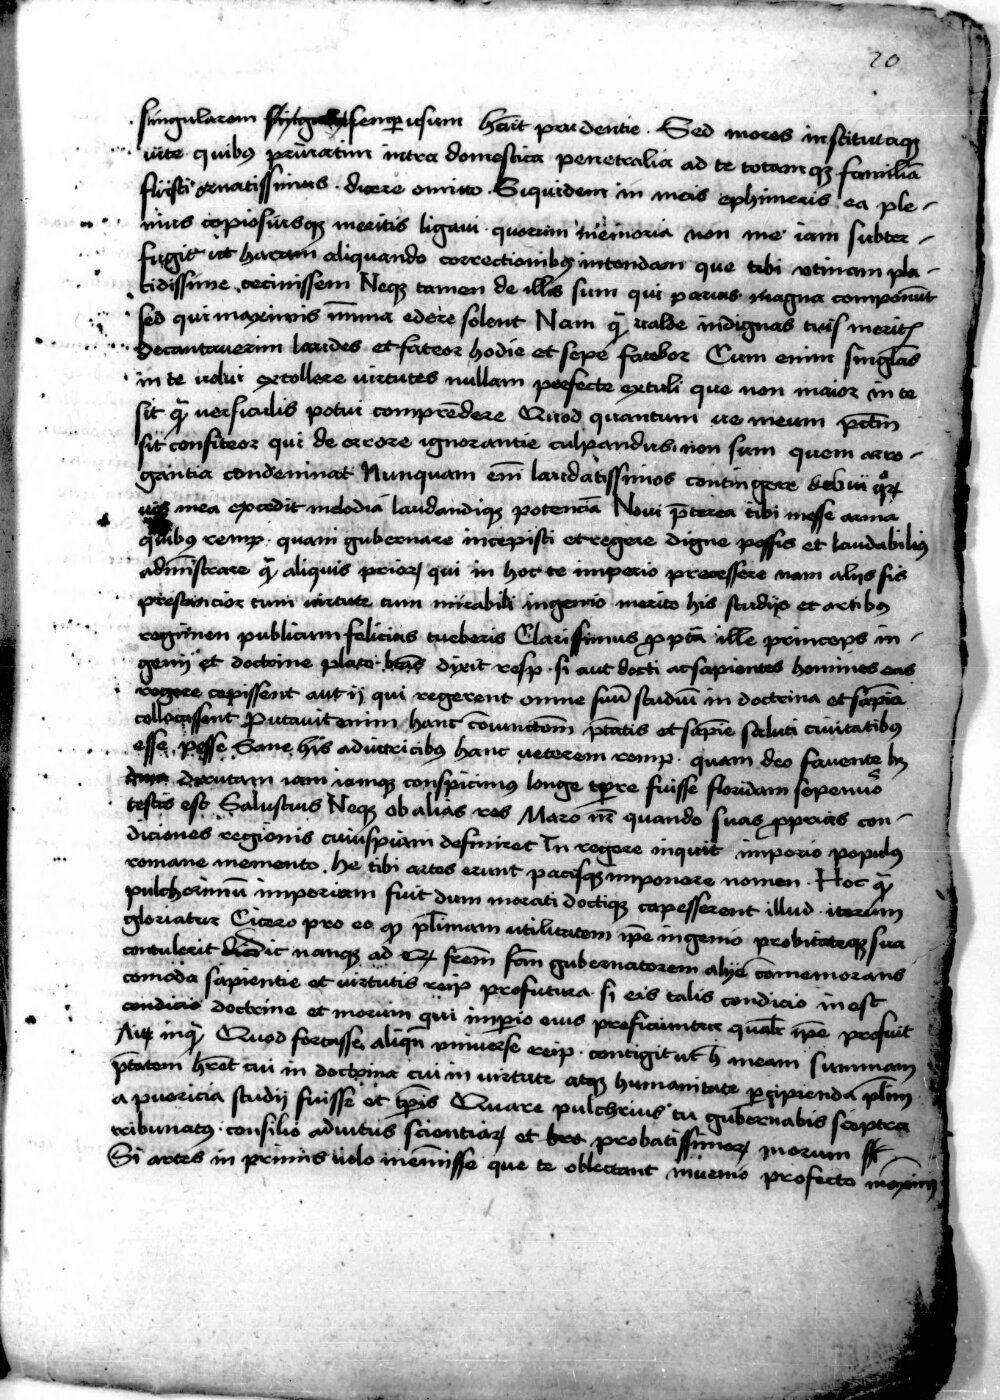 20
singularem semper usum hāuit prudentie . Sed mores institutaqꝫ
vite quibꝰ privatim intra domestica penetralia ad te totamqꝫ familiā
fuisti ornatissimus . dicere omitto . Siquidem in meis ephimeris ea ple-
nius copiosiusqꝫ meritis ligavi . quorum memoria non me iam subter-
fugit ut harum aliquando correctionibꝰ intendam que tibi utinam pla-
cidissime cecinissem Neqꝫ tamen de illis sum qui parvas magna componūt
sed qui maximis mīma edere solent Nam q̄ valde indignas tuis meritꝭ
decantaverim laudes et fateor hodie et sepe fatebor Cum enim singl̄as
in te volui extollere virtutes nullam perfecte extuli que non maior in te
sit q̄ versiculis potui comprēdere Quod quantum ve meum pctm̄
sit confiteor qui de errore ignorantie culpandus non sum quem arro-
gantia condemnat Nunquam em̄ laudatissimos contingere debui qꝛ
vis mea excedit melodiā laudandiqꝫ potenciā Novi p̄terea tibi inesse arma
quibꝰ remp . quam gubernare incepisti et regere digne possis et laudabiliꝰ
adm̄istrare q̄ aliquis prioꝝ qui in hoc te imperio precessere nam alijs sis
prestancior tum virtute tum mirabili ingenio merito his studijs et artibꝰ
regimen publicum felicius tueberis Clarissimus ꝓptā ille princeps in-
genij et doctrine plato dixit resp . si aut docti ac sapientes homines eas
regere cepissent aut ij qui regerent omne suū studiū in doctrina et sapiā
collocassent Putavit enim hanc cōiunctōem p̄tatis et sapie saluti civitatibꝰ
esse posse Sane his adiutricibꝰ hanc veterem remp . quam deo favente
dirutam iam iamqꝫ conspicimꝰ longe tp̄re fuisse floridam sepenuō
testis est Salustius Neqꝫ ob alias res Maro nr̄ quando suas ꝓprias con-
diciones regionis cuiuspiam definiret Tu regere inquit imperio populꝰ
romane memento . he tibi artes erunt pacisqꝫ imponere nomen . Hoc q̄
pulcherimū imperium fuit dum morati doctiqꝫ capesserent illud . iterum
gloriatur Cicero pro eo qꝫ pl̄imam utilitatem ip̄e ingenio probitateqꝫ sua
contulerit Sic nanqꝫ ad Q. frēm sm̄ gubernatorem asye cōmemorans
comoda sapientie et virtutis reip profutura . si eis talis condicio inest
condicio doctrine et morum qui imperio eius proficiuntur qual̄r ip̄e profuit
Ait inq̄ Quod fortasse aliqn̄ universe reip . contigit ut h̄ meam summam
p̄tatem hr̄et cui in doctrina cui in virtute atqꝫ humanitate percipienda pl̄im
a puericia studij fuisse et tp̄is Quare pulchrius tu gubernabis sceptra
tribunatꝰ . consilio adiutus scientiaꝝ et probatissimoꝝ morum
Si artes in primis volo meminisse que te oblectant invenio profecto maximū